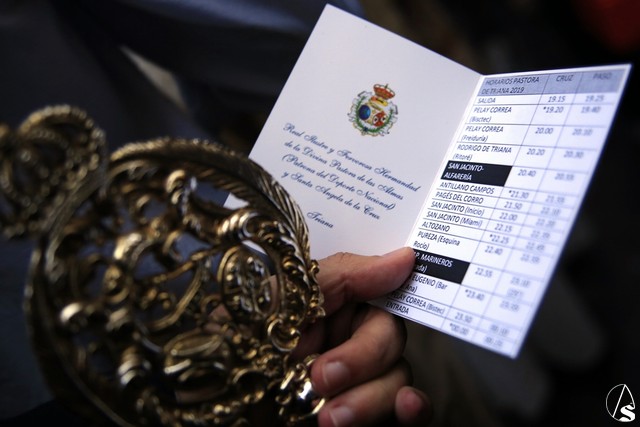 Real Ilustre y Fervorosa Hermandad
de la Divina Pastora de las Almas
(Patrona del Deporte Nacional)
y Santa Ángela de la Cruz
Triana
HORARIOS PASTORA DE TRIANA 2019 CRUZ PASO
SALIDA 19.15 19.25
PELAY CORREA (Bisctec) *19.20 19.40
PELAY CORREA (Freiduría) 20.00 20.10
RODRIGO DE TRIANA 20.20 20.30
SAN JACINTO-ALFARERÍA 20.40 20.55
ANTILLANO CAMPOS *21.30
PAGÉS DEL CORRO 21.50
SAN JACINTO (Inicio) 22.00
SAN JACINTO (Miami) 22.15
ALTOZANO *22.25
PUREZA (Esquina Rocío) 22.40
P. MARINEROS 22.55
EUGENIO (Bar *23.40
PELAY CORREA (Bistec) 23.50
ENTRADA *00.00